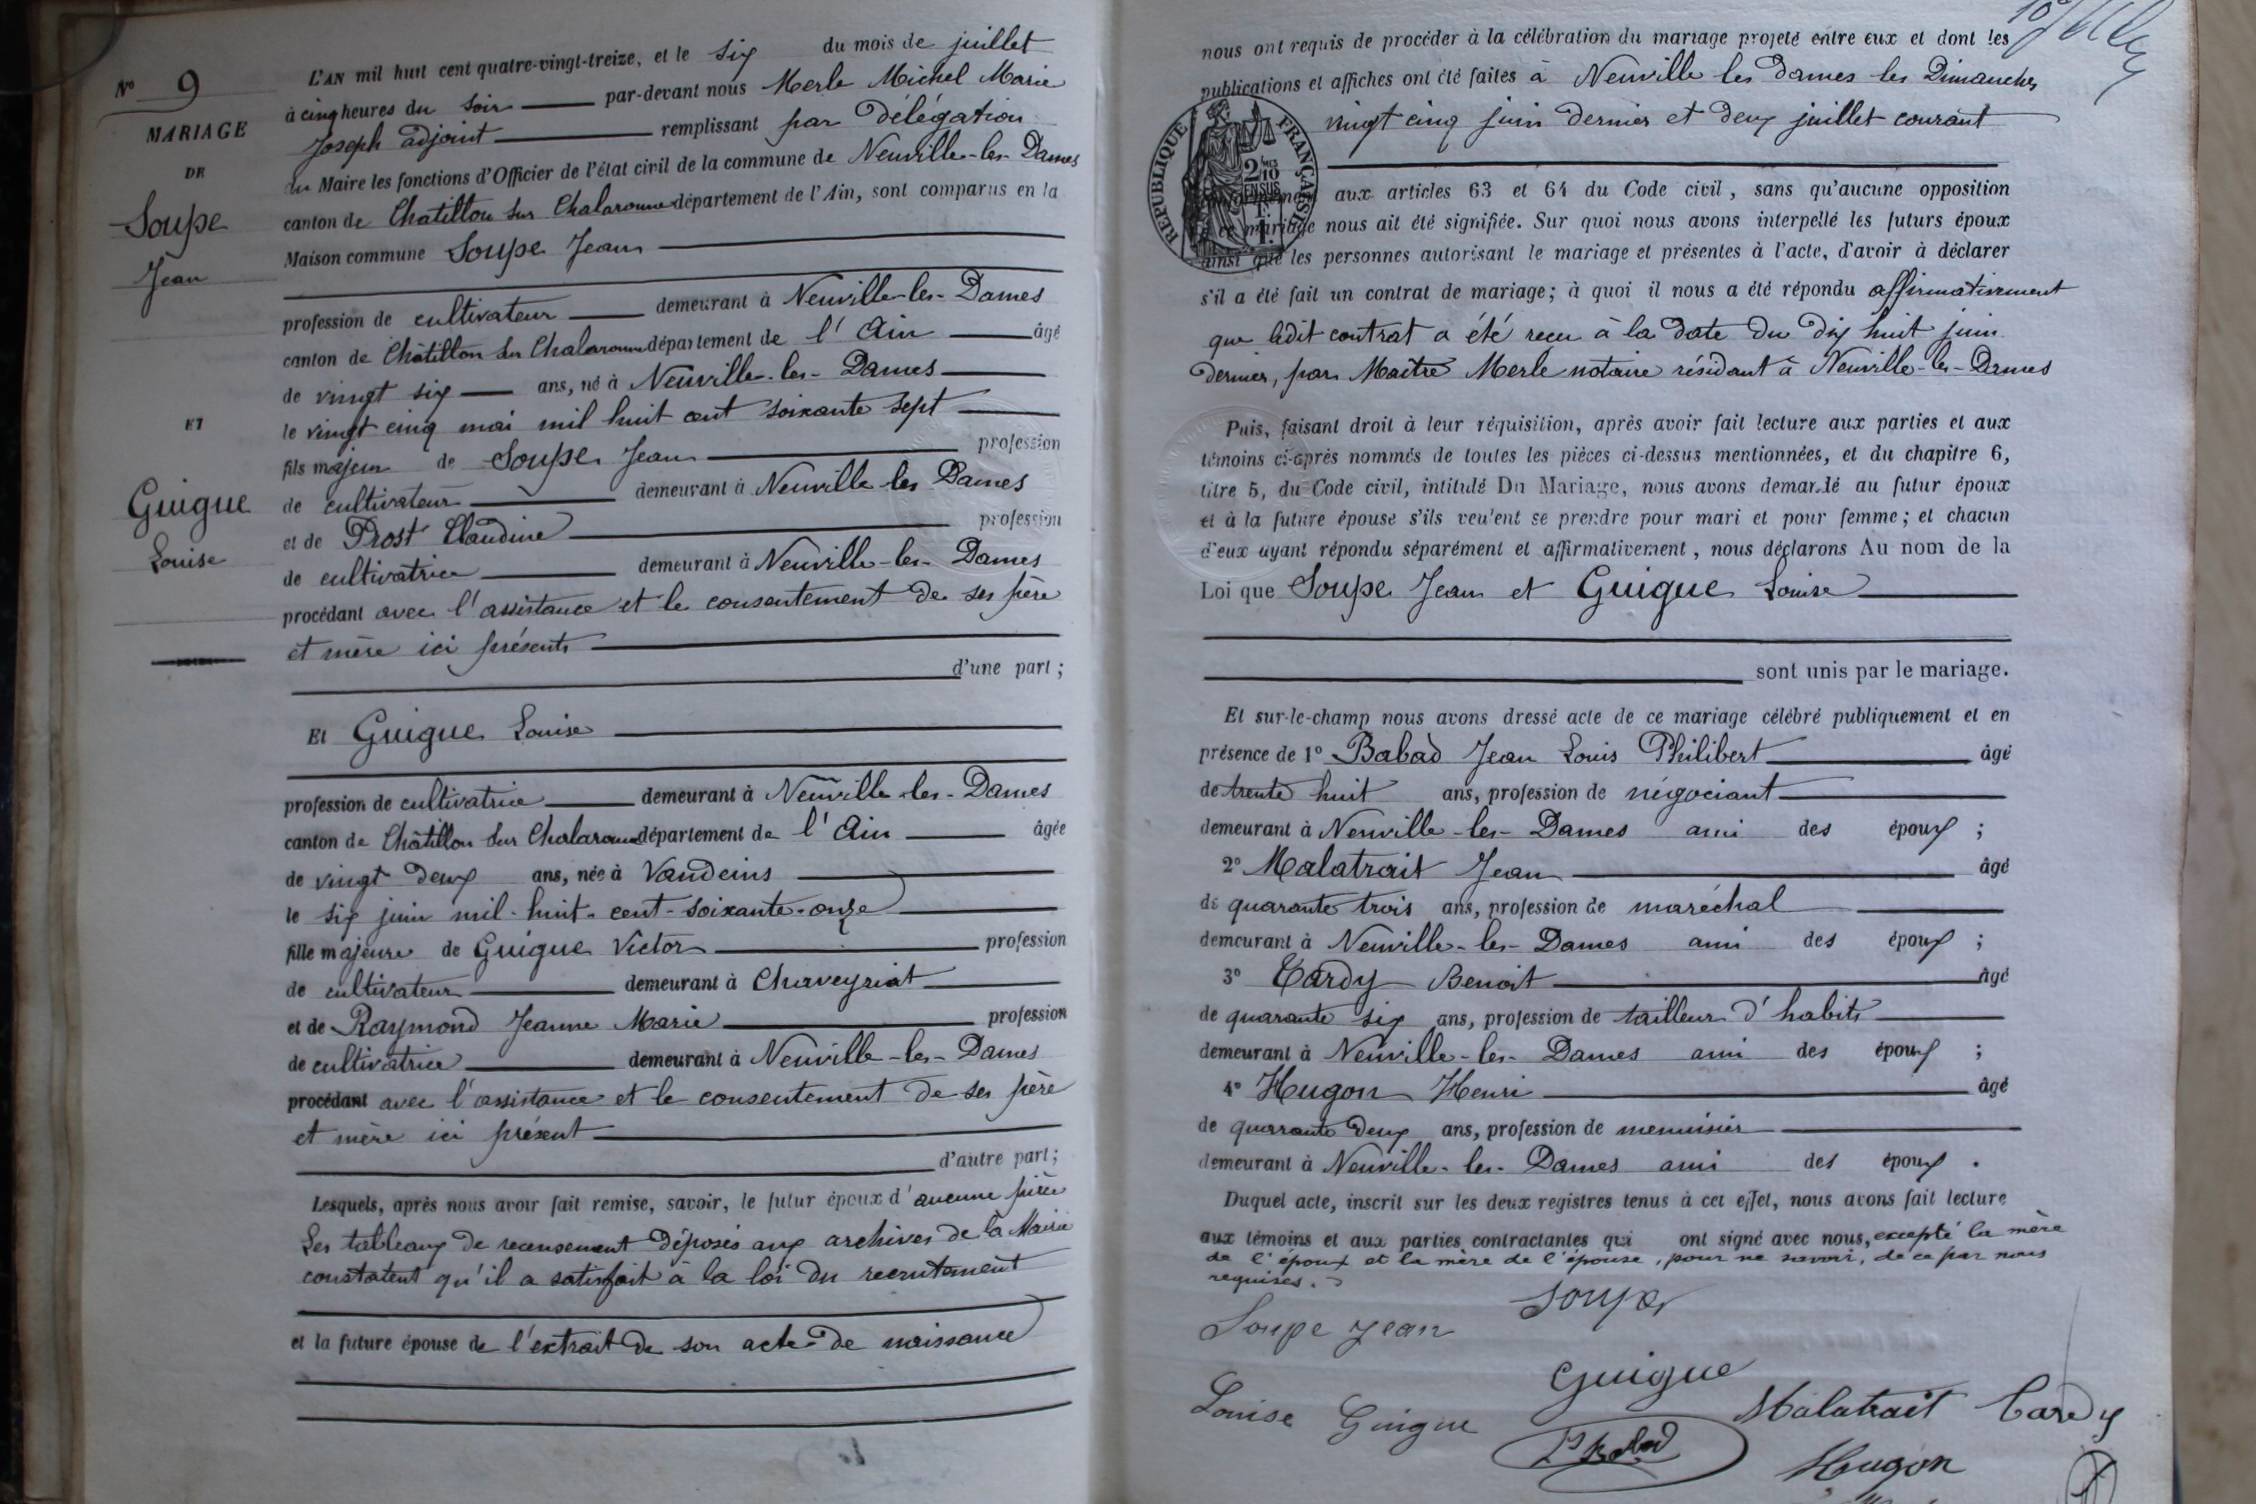 N° 9
MARIAGE
DE
Soupe
Jean
ET
Guigue
Louise
L'AN mil huit cent quatre-vingt-treize, et le six du mois de juillet
à cinq heures du soir par-devant nous Merle Michel Marie
Joseph adjoint remplissant par Délégation
du Maire les fonctions d'Officier de l'état civil de la commune de Neuville-les-Dames
canton de Chatillon sur Chalaronne département de l'Ain, sont comparus en la
Maison commune Soupe Jean
profession de cultivateur demeurant à Neuville-les-Dames
canton de Châtillon sur Chalaronne département de l'Ain âgé
de vingt six ans, né à Neuville-les-Dames
le vingt cinq mai mil huit cent soixante sept
fils majeur de Soupe Jean profession
de cultivateur demeurant à Neuville les Dames
et de Prost Claudine profession
de cultivatrice demeurant à Neuville-les-Dames
procédant avec l'assistance et le consentement de ses père
et mère ici présents
d'une part ;
Et Guigue Louise
profession de cultivatrice demeurant à Neuville-les-Dames
canton de Châtillon sur Chalaronne département de l'Ain âgée
de vingt deux ans, née à Vandeins
le six juin mil-huit-cent-soixante-onze
fille majeure de Guigue Victor profession
de cultivateur demeurant à Chaveyriat
et de Raymond Jeanne Marie profession
de cultivatrice demeurant à Neuville-les-Dames
procédant avec l'assistance et le consentement de ses père
et mère ici présent
d'autre part ;
Lesquels, après nous avoir fait remise, savoir, le futur époux d'aucune pièce
Les tableaux de recensement déposés aux archives de la Mairie
constatent qu'il a satisfait à la loi du recrutement
et la future épouse de l'extrait de son acte de naissance
nous ont requis de procéder à la célébration du mariage projeté entre eux et dont les
publications et affiches ont été faites à Neuville les Dames les Dimanches
vingt cinq juin dernier et deux juillet courant
REPUBLIQUE FRANÇAISE
2/10
EN SUS
conformément aux articles 63 et 64 du Code civil, sans qu'aucune opposition
à ce mariage nous ait été signifiée. Sur quoi nous avons interpellé les futurs époux
ainsi que les personnes autorisant le mariage et présentes à l'acte, d'avoir à déclarer
s'il a été fait un contrat de mariage ; à quoi il nous a été répondu affirmativement
que ledit contrat a été reçu à la date du dix huit juin
dernier, par Maître Merle notaire résidant à Neuville-les-Dames
Puis, faisant droit à leur réquisition, après avoir fait lecture aux parties et aux
témoins ci-après nommés de toutes les pièces ci-dessus mentionnées, et du chapitre 6,
titre 5, du Code civil, intitulé Du Mariage, nous avons demandé au futur époux
et à la future épouse s'ils veulent se prendre pour mari et pour femme ; et chacun
d'eux ayant répondu séparément et affirmativement, nous déclarons Au nom de la
Loi que Soupe Jean et Guigue Louise
sont unis par le mariage.
Et sur-le-champ nous avons dressé acte de ce mariage célébré publiquement et en
présence de 1° Babad Jean Louis Philibert âgé
de trente huit ans, profession de négociant
demeurant à Neuville-les-Dames ami des époux ;
2° Malatrait Jean âgé
de quarante trois ans, profession de maréchal
demeurant à Neuville-les-Dames ami des époux ;
3° Cardy Benoit âgé
de quarante six ans, profession de tailleur d'habits
demeurant à Neuville-les-Dames ami des époux ;
4° Hugon Henri âgé
de quarante deux ans, profession de menuisier
demeurant à Neuville-les-Dames ami des époux .
Duquel acte, inscrit sur les deux registres tenus à cet effet, nous avons fait lecture
aux témoins et aux parties contractantes qui ont signé avec nous, excepté la mère
de l'époux et la mère de l'épouse, pour ne savoir, de ce par nous
requises.
Soupe
Soupe Jean
Guigue
Louise Guigue
Malatrait Cardy
Babad
Hugon